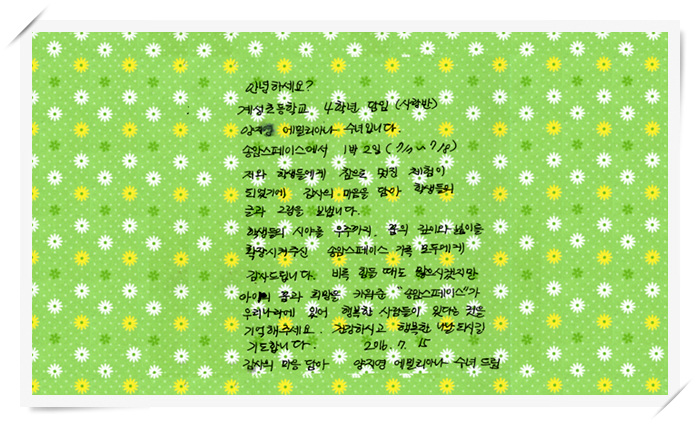 안녕하세요?
계성초등학교 4학년 담임 (사랑반)
양지영 에밀리아나 수녀입니다.
송암스페이스에서 1박 2일 (7/7~7/8)
저와 학생들에게 참으로 멋진 체험이
되었기에 감사의 마음을 담아 학생들의
글과 그림을 보냅니다.
학생들의 시야를 우주까지, 꿈의 깊이와 높이를
확장시켜주신 송암스페이스 가족 모두에게
감사드립니다. 비록 힘들 때도 많으시겠지만
아이의 꿈과 희망을 키워준 "송암스페이스"가
우리나라에 있어 행복한 사람들이 있다는 것을
기억해주세요. 건강하시고 행복한 나날 되시길
기도합니다. 2016. 7. 15
감사의 마음 담아 양지영 에밀리아나 수녀 드림